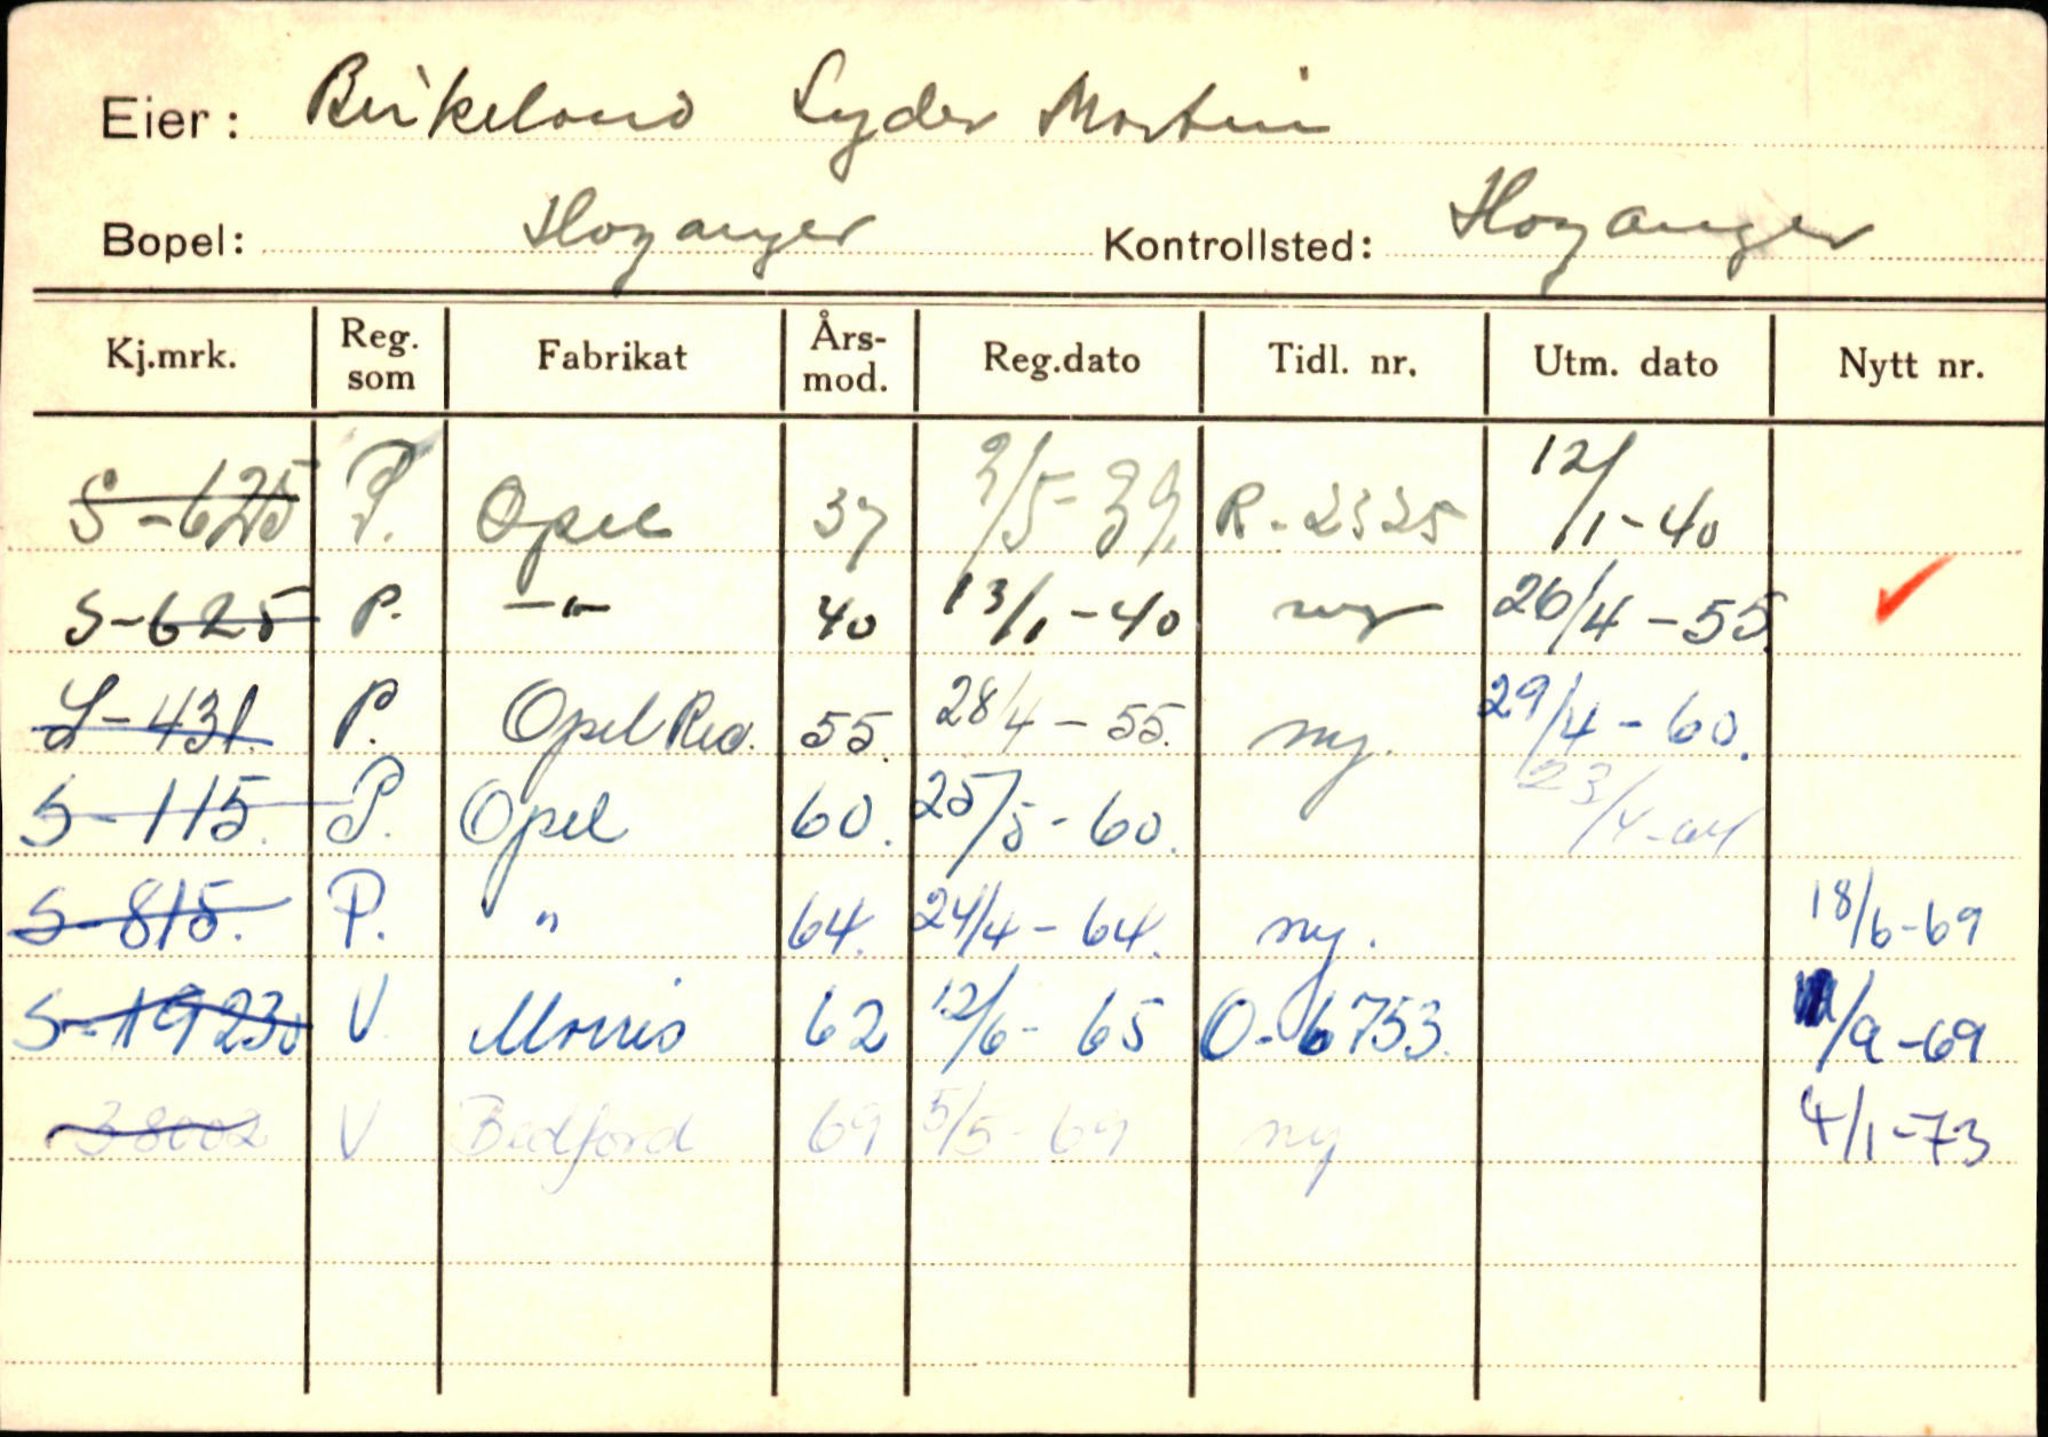 Eier: Birkeland Lyder Martin
Bopel: Høyanger Kontrollsted: Høyanger
Kj.mrk. Reg. som Fabrikat Års-mod. Reg.dato Tidl. nr. Utm. dato Nytt nr.
S-625 P. Opel 37 2/5-39. R-2325 12/1-40
S-625 P. -"- 40 13/1-40 ny 26/4-55. ✓
S-431. P. Opel Rec. 55. 28/4-55. ny. 29/4-60.
S-115. P. Opel 60. 25/5-60. 23/4-64
S-815. P. " 64. 24/4-64. ny. 18/6-69
S-19230 V Morris 62 12/6-65 O-6753. /9-69
38002 V Bedford 69 5/5-69 ny 4/1-73